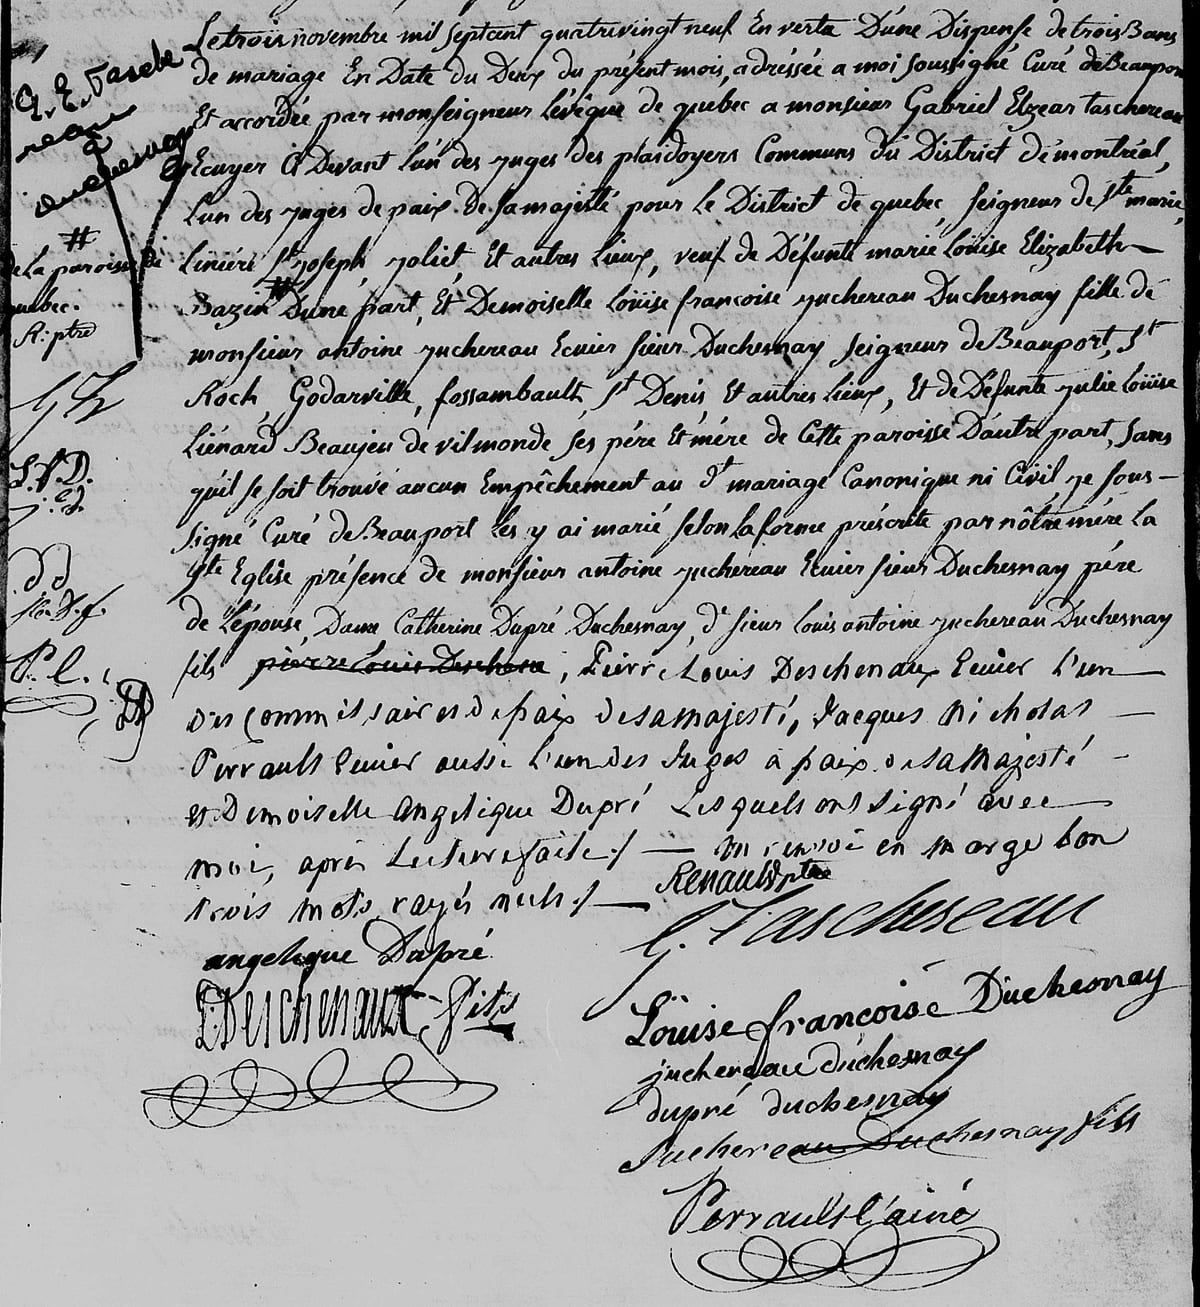 G. E. Tasche
reau
a
duchesnay
#
de La paroisse de
quebec.
R: ptre
G T
L. f. D.
j. d.
D D
P. L.
Le trois novembre mil septcent quatrevingt neuf En vertu D'une Dispense de trois Bans
de mariage En Date du Deux du présent mois, adréssée a moi soussigné Curé de Beauport
Et accordée par monseigneur L'évêque de quebec a monsieur Gabriel Elzear taschereau
Ecuyer Ci Devant L'un des juges des plaidoyers Communs du District de montréal,
L'un des juges de paix de sa majesté pour Le District de quebec, seigneur de Ste marie,
Liniéré St joseph joliet Et autres Lieux, veuf de Défunte marie Loüise Elizabeth
Bazin # D'une part, Et Demoiselle Loüise francoise juchereau Duchesnay fille de
monsieur antoine juchereau Ecuier sieur Duchesnay seigneur de Beauport, St
Roch Godarville, fossambault, St Denis, Et autres Lieux, Et de Défunte julie Loüise
Liénard Beaujeu de vilmonde ses pére Et mére de Cette paroisse D'autre part, sans
qu'il se soit trouvé aucun Empêchement au dt mariage Canonique ni Civil je sous-
signé Curé de Beauport Les y ai marié selon la forme préscrite par nôtre mére la
Ste Eglise présence de monsieur antoine juchereau Ecuier sieur Duchesnay pére
de L'épouse, Dame Catherine Dupré Duchesnay, dt sieur Louis antoine juchereau Duchesnay
fils pierre Louis Deschene, Pierre Louis Deschenaux Ecuier L'un
Des Commissaires de paix de sa Majesté, Jacques Nicholas
Perrault Ecuier aussi L'un des Juges à paix de sa Majesté
et Demoiselle Angelique Dupré Lesquels ont signé avec
moi, après Lecture faite ./ — un renvoi en marge bon
trois mots rayés nuls ./ —
Renauld ptre
G. Taschereau
angelique Dupré
P L Deschenaux, fils
Loüise francoise Duchesnay
juchereau duchesnay
dupré duchesnay
Juchereau Duchesnay fils
Perrault L'ainé